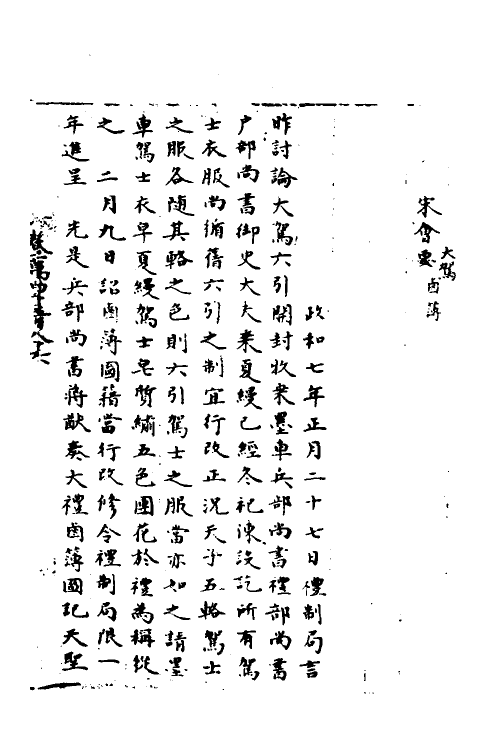 宋會要
大駕
鹵薄
政和七年正月二十七日禮制局言
昨討論大駕六引開封牧乘墨車兵部尚書禮部尚書
户部尚書御史大夫乘夏縵已經冬祀陳設訖所有駕
士衣服尚循舊六引之制宜行改正況天子五輅駕士
之服各隨其輅之色則六引駕士之服當亦如之請墨
車駕士衣皁夏縵駕士皂質繡五色團花於禮為稱從
之　二月九日詔鹵薄圖籍當行改修令禮制局限一
年進呈　先是兵部尚書蔣猷奏大禮鹵薄圖記天聖